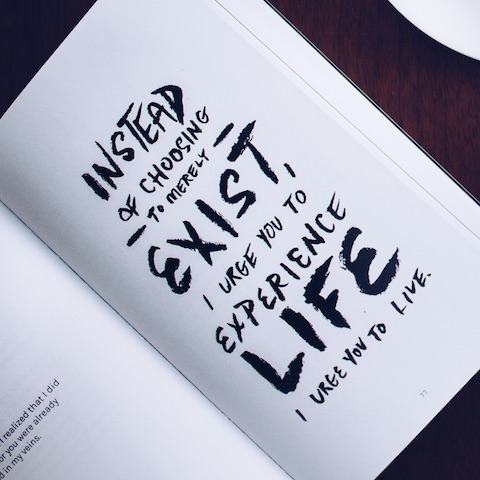 INSTEAD
OF CHOOSING
- TO MERELY -
EXIST,
I URGE YOU TO
EXPERIENCE
LIFE
I URGE YOU TO LIVE.
77
I realized that I did
or you were already
d in my veins.